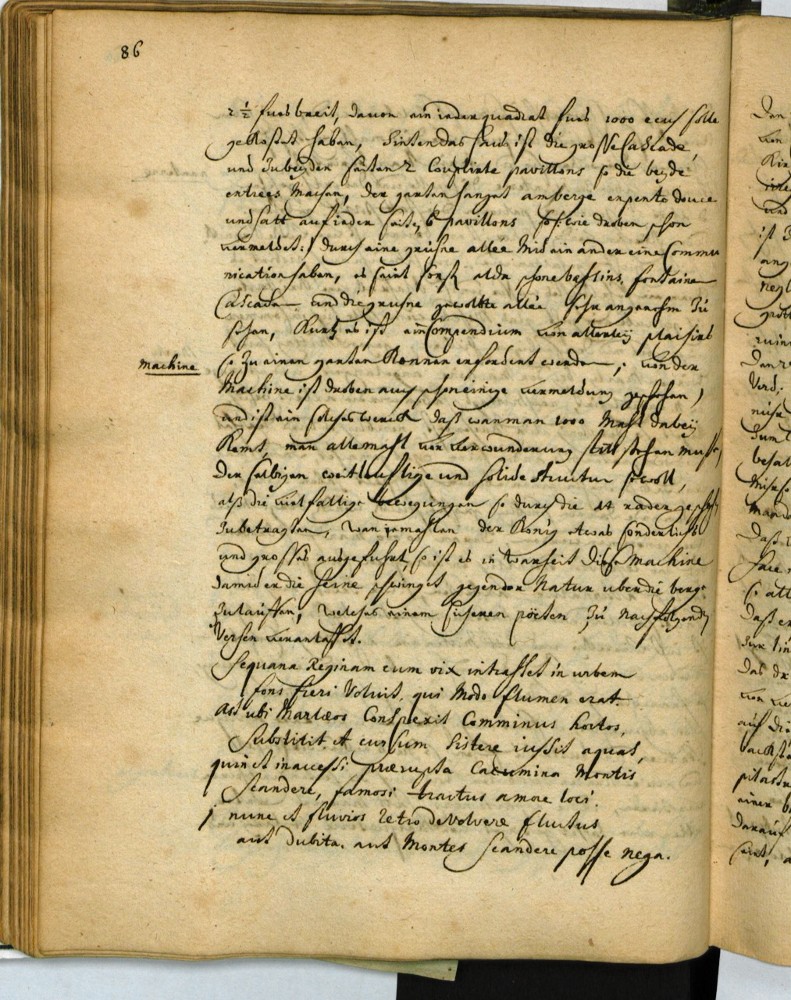 86
2 ½ fues breit, davon ein ieder quadrat fues 1000 ecus solle
gekostet haben, hinten das haus ist die grosse Cascade,
und zu beyden seiten 2 Couplirte pavillons so die beyde
entrées machen, der garten hanget amberge en pente douce
und hatt auf ieder seite, 6 pavillons so: wie droben schon
vermeldet:/ durch eine grühne allée mid ein ander eine Commu
nication haben, es seint sonst alda schone bassins, fontainen
Cascaden und die gruhne gewolbte allée sehr angenehm zu
sehen, Kurtz es ist ein Compendium von allerley plaisirs
machine
so zu einen garten Konnen erfordert werden, von der
Machine ist droben auch schon einige vermeldung geschehen,
und ist ein solches werck daß wan man 1000 Mahl dabey
Kemt, man allemahl von verwunderung still stehen muss,
der selbigen weitleuftige und solide structur so woll,
alß die vielfaltige bewegungen so durch die 14 räder gescheh
zu betragten, wan jemahlen der König etwas sonderliches
und grosses ausgefuhrt, so ist es in warheit diese Machine
damid er die seine zwinget gegen der Natur uber die berge
zu lauffen, welches einem sicheren pöeten zu nachfolgenden
Versen veranlasset.
Sequana Reginam cum vix intrasset in urbem
fons fieri Voluit, qui modo flumen erat.
Ast ubi Marlæos Conspexit Comminus hortos,
Substitit et cursum sistere iussit aquas,
quin et inaccessi prærupta Cacumina Montis
Scandere, famosi tractus amore loci.
j nunc et fluvios retro devolvere fluctus
aut dubita, aut Montes Scandere posse nega.